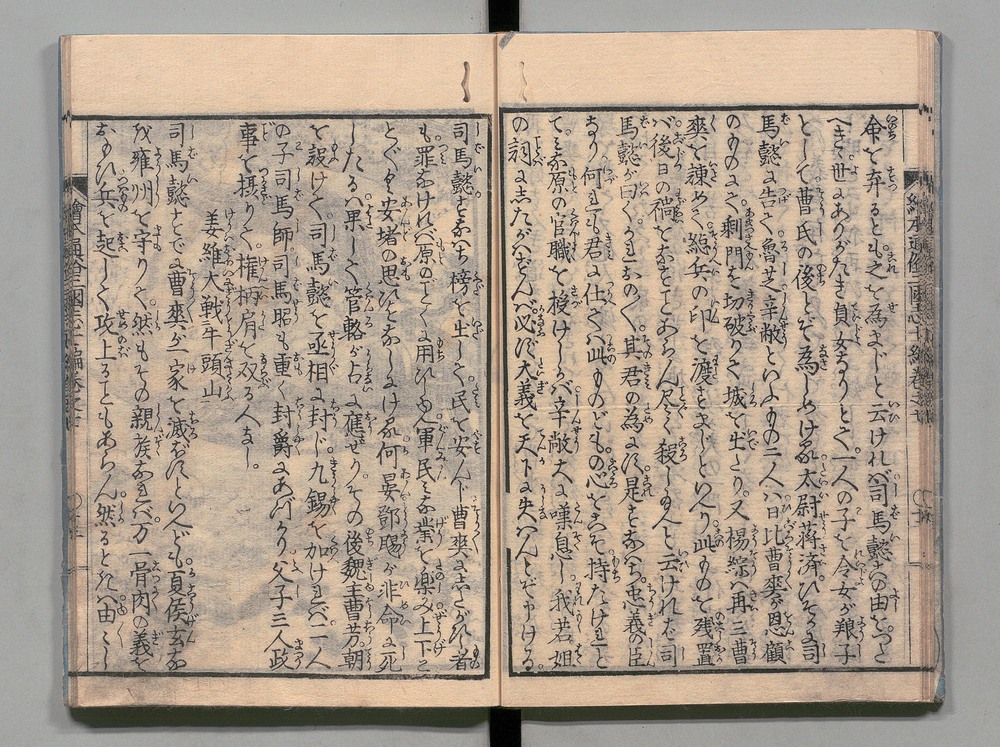 命を弃るとも之を為まじと云けれバ司馬懿この由をきゝ
へき世にありがたき貞女なりとて一人の子を令女が養子
として曹氏の後とぞ為しめける太尉蒋済ひそかに司
馬懿に告て魯芝辛敞といふもの二人ハ日比曹爽が恩顧
のものにて剰門を切破りて城を出たり又楊綜ハ再三曹
爽を諫めて緫兵の印を渡さまじといへり此ものを残置
バ後日の禍をなすこてあらん尽く殺しめんと云けれバ司
馬懿が曰くかれらおのく其君の為にす是すなハち忠義の臣
なり何れも君に仕てハ此ものどもの心をこそ持たけれと
て原の官職を授けしかバ辛敞大に嘆息し我若姐
の詞にしたがハずんバ必ず大義を天下に失ハんとぞ申ける
司馬懿すなハち榜を出して民を安んじ曹爽にしたがひし者
も罪なけれバ原のごとくに用ひしゆへ軍民みな業を楽み上下こ
とごとく安堵の思ひをなしにける何晏鄧颺が非命に死
したるハ果して管輅が占に應せりその後魏主曹芳朝
を設けて司馬懿を丞相に封じ九錫を加けれバ一人
の子司馬師司馬昭も重く封爵にあづかり父子三人政
事を摂りて権柄肩を双る人なし
姜維大戦牛頭山
司馬懿すでに曹爽が一家を滅ぼすといへども夏侯玄な
を雍州を守りて然もその親族なれバ万一骨肉の義を
おもひ兵を起して攻上ることもあらん然るときハ由〻し